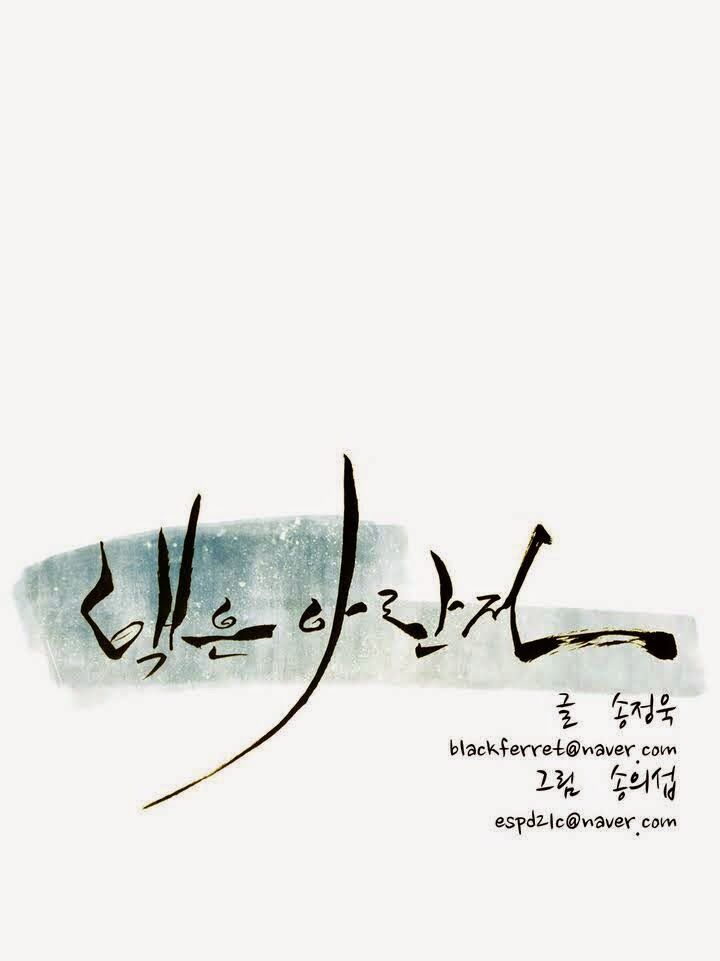 아란전
글 송정욱
blackferret@naver.com
그림 송의섭
espd21c@naver.com